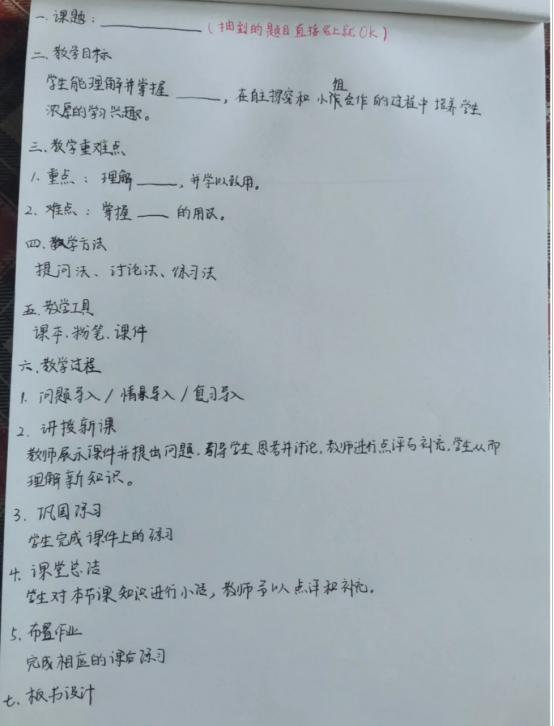 一、课题：__________（抽到的题目直接写上就OK）
二、教学目标
学生能理解并掌握 _____，在自主探究和小组合作的过程中培养学生
浓厚的学习兴趣。
三、教学重难点
1. 重点：理解_____，并学以致用。
2. 难点：掌握____的用法。
四、教学方法
提问法、讨论法、练习法
五、教学工具
课本、粉笔、课件
六、教学过程
1. 问题导入/情景导入/复习导入
2. 讲授新课
教师展示课件并提出问题，引导学生思考并讨论，教师进行点评与补充，学生从而
理解新知识。
3. 巩固练习
学生完成课件上的练习
4. 课堂总结
学生对本节课知识进行小结，教师予以点评和补充。
5. 布置作业
完成相应的课后练习
七、板书设计